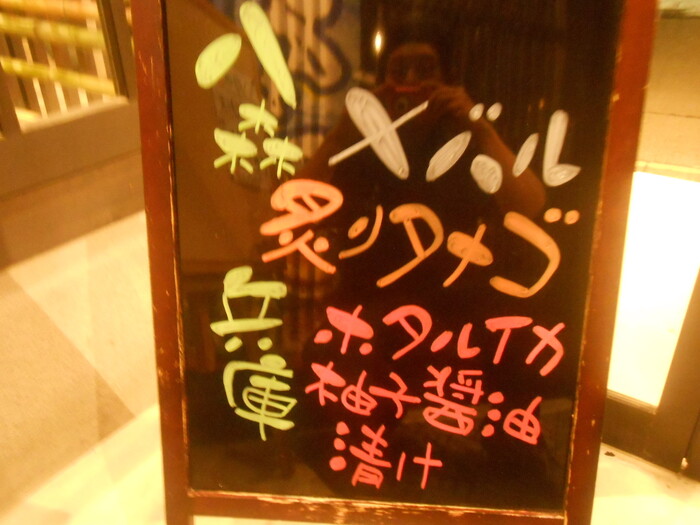 八森
メバル
炙リタナゴ
兵庫
ホタルイカ
柚子醤油
漬け